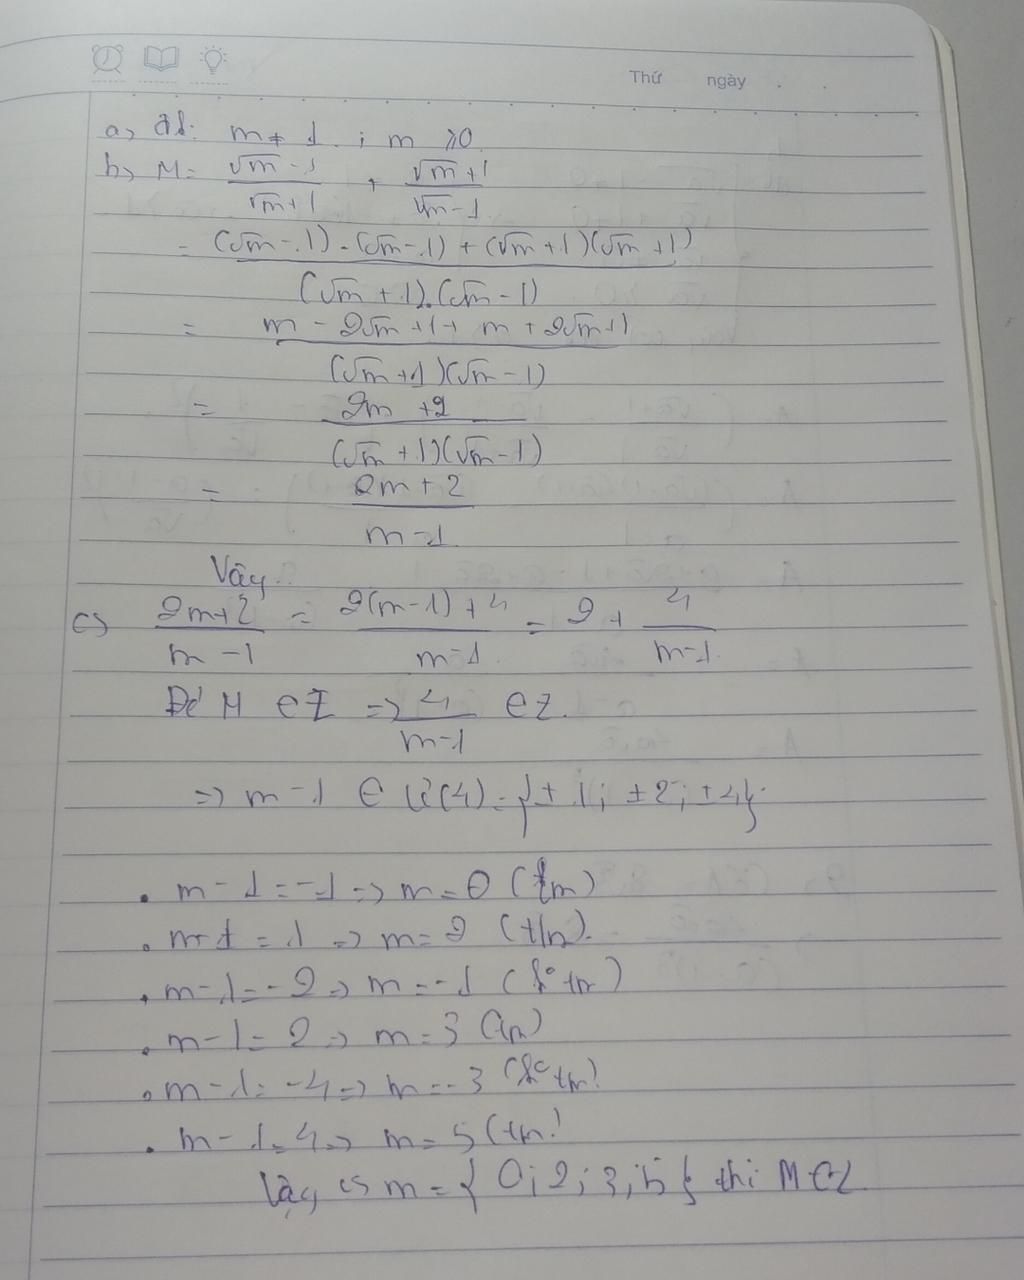 Thứ ngày
a, đk: m ≠ 1 ; m ≥ 0
b, M = (√m - 1)/(√m + 1) + (√m + 1)/(√m - 1)
= ((√m - 1) . (√m - 1) + (√m + 1)(√m + 1))/((√m + 1).(√m - 1))
= (m - 2√m + 1 + m + 2√m + 1)/((√m + 1)(√m - 1))
= (2m + 2)/((√m + 1)(√m - 1))
= (2m + 2)/(m - 1)
Vậy..
c, (2m + 2)/(m - 1) = (2(m - 1) + 4)/(m - 1) = 2 + 4/(m - 1)
Để M ∈ Z => 4/(m - 1) ∈ Z.
=> m - 1 ∈ Ư(4) = {± 1; ± 2; ± 4}
. m - 1 = -1 => m = 0 (tm)
. m - 1 = 1 => m = 2 (tm).
. m - 1 = -2 => m = -1 (ko tm)
. m - 1 = 2 => m = 3 (tm)
. m - 1 = -4 => m = -3 (ko tm)
. m - 1 = 4 => m = 5 (tm)
Vậy m = { 0; 2; 3; 5 } thì M ∈ Z